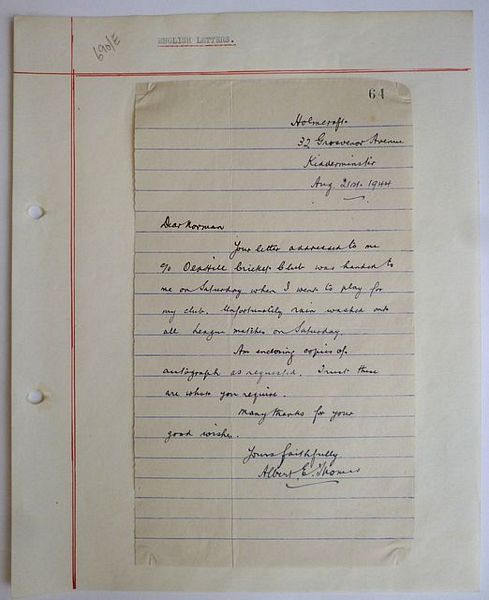 690/E
ENGLISH LETTERS.
64
Holmcroft.
32 Grosvenor Avenue
Kidderminster
Aug. 21st. 1944
Dear Norman
Your letter addressed to me
c/o Oldhill Cricket Club was handed to
me on Saturday when I went to play for
my club. Unfortunately rain washed out
all League matches on Saturday.
Am enclosing copies of.
autograph as requested. Trust these
are what you require.
Many thanks for your
good wishes.
Yours faithfully
Albert E. Thomas